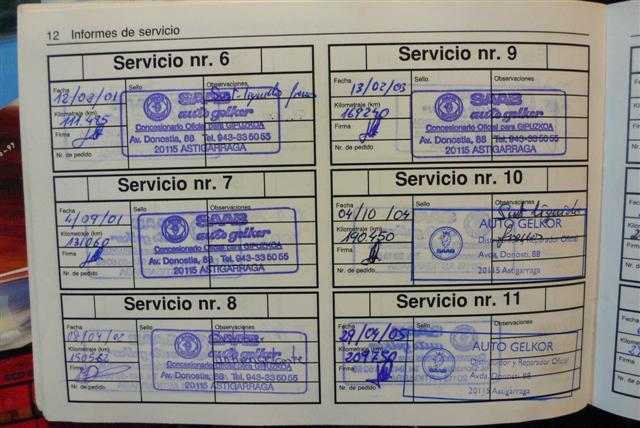 12 Informes de servicio
Servicio nr. 6
Fecha Sello Observaciones
12/03/01 Sust. liquido frenos
Kilometraje (km)
111.435
Firma
Nr. de pedido
SAAB
auto gelkor
Concesionario Oficial para GIPUZKOA
Av. Donostia, 88 Tel. 943-33 50 55
20115 ASTIGARRAGA
Servicio nr. 7
Fecha Sello Observaciones
4/09/01
Kilometraje (km)
131060
Firma
Nr. de pedido
SAAB
auto gelkor
Concesionario Oficial para GIPUZKOA
Av. Donostia, 88 Tel. 943-33 50 55
20115 ASTIGARRAGA
Servicio nr. 8
Fecha Sello Observaciones
Kilometraje (km)
150562
Firma
Nr. de pedido
Concesionario Oficial para GIPUZKOA
Av. Donostia, 88 Tel. 943-33 50 55
20115 ASTIGARRAGA
Servicio nr. 9
Fecha Sello Observaciones
13/02/03
Kilometraje (km)
169240
Firma
Nr. de pedido
SAAB
auto gelkor
Concesionario Oficial para GIPUZKOA
Av. Donostia, 88 Tel. 943-33 50 55
20115 ASTIGARRAGA
Servicio nr. 10
Fecha Sello Observaciones
04/10/04 Sust liquido
Kilometraje (km) frenos
190450
Firma
Nr. de pedido
AUTO GELKOR
Distribuidor y Reparador Oficial
Avda. Donosti, 88
20115 Astigarraga
SAAB
Servicio nr. 11
Fecha Sello Observaciones
29/04/05
Kilometraje (km)
209750
Firma
Nr. de pedido
AUTO GELKOR
Distribuidor y Reparador Oficial
Avda. Donosti, 88
20115 Astigarraga
SAAB